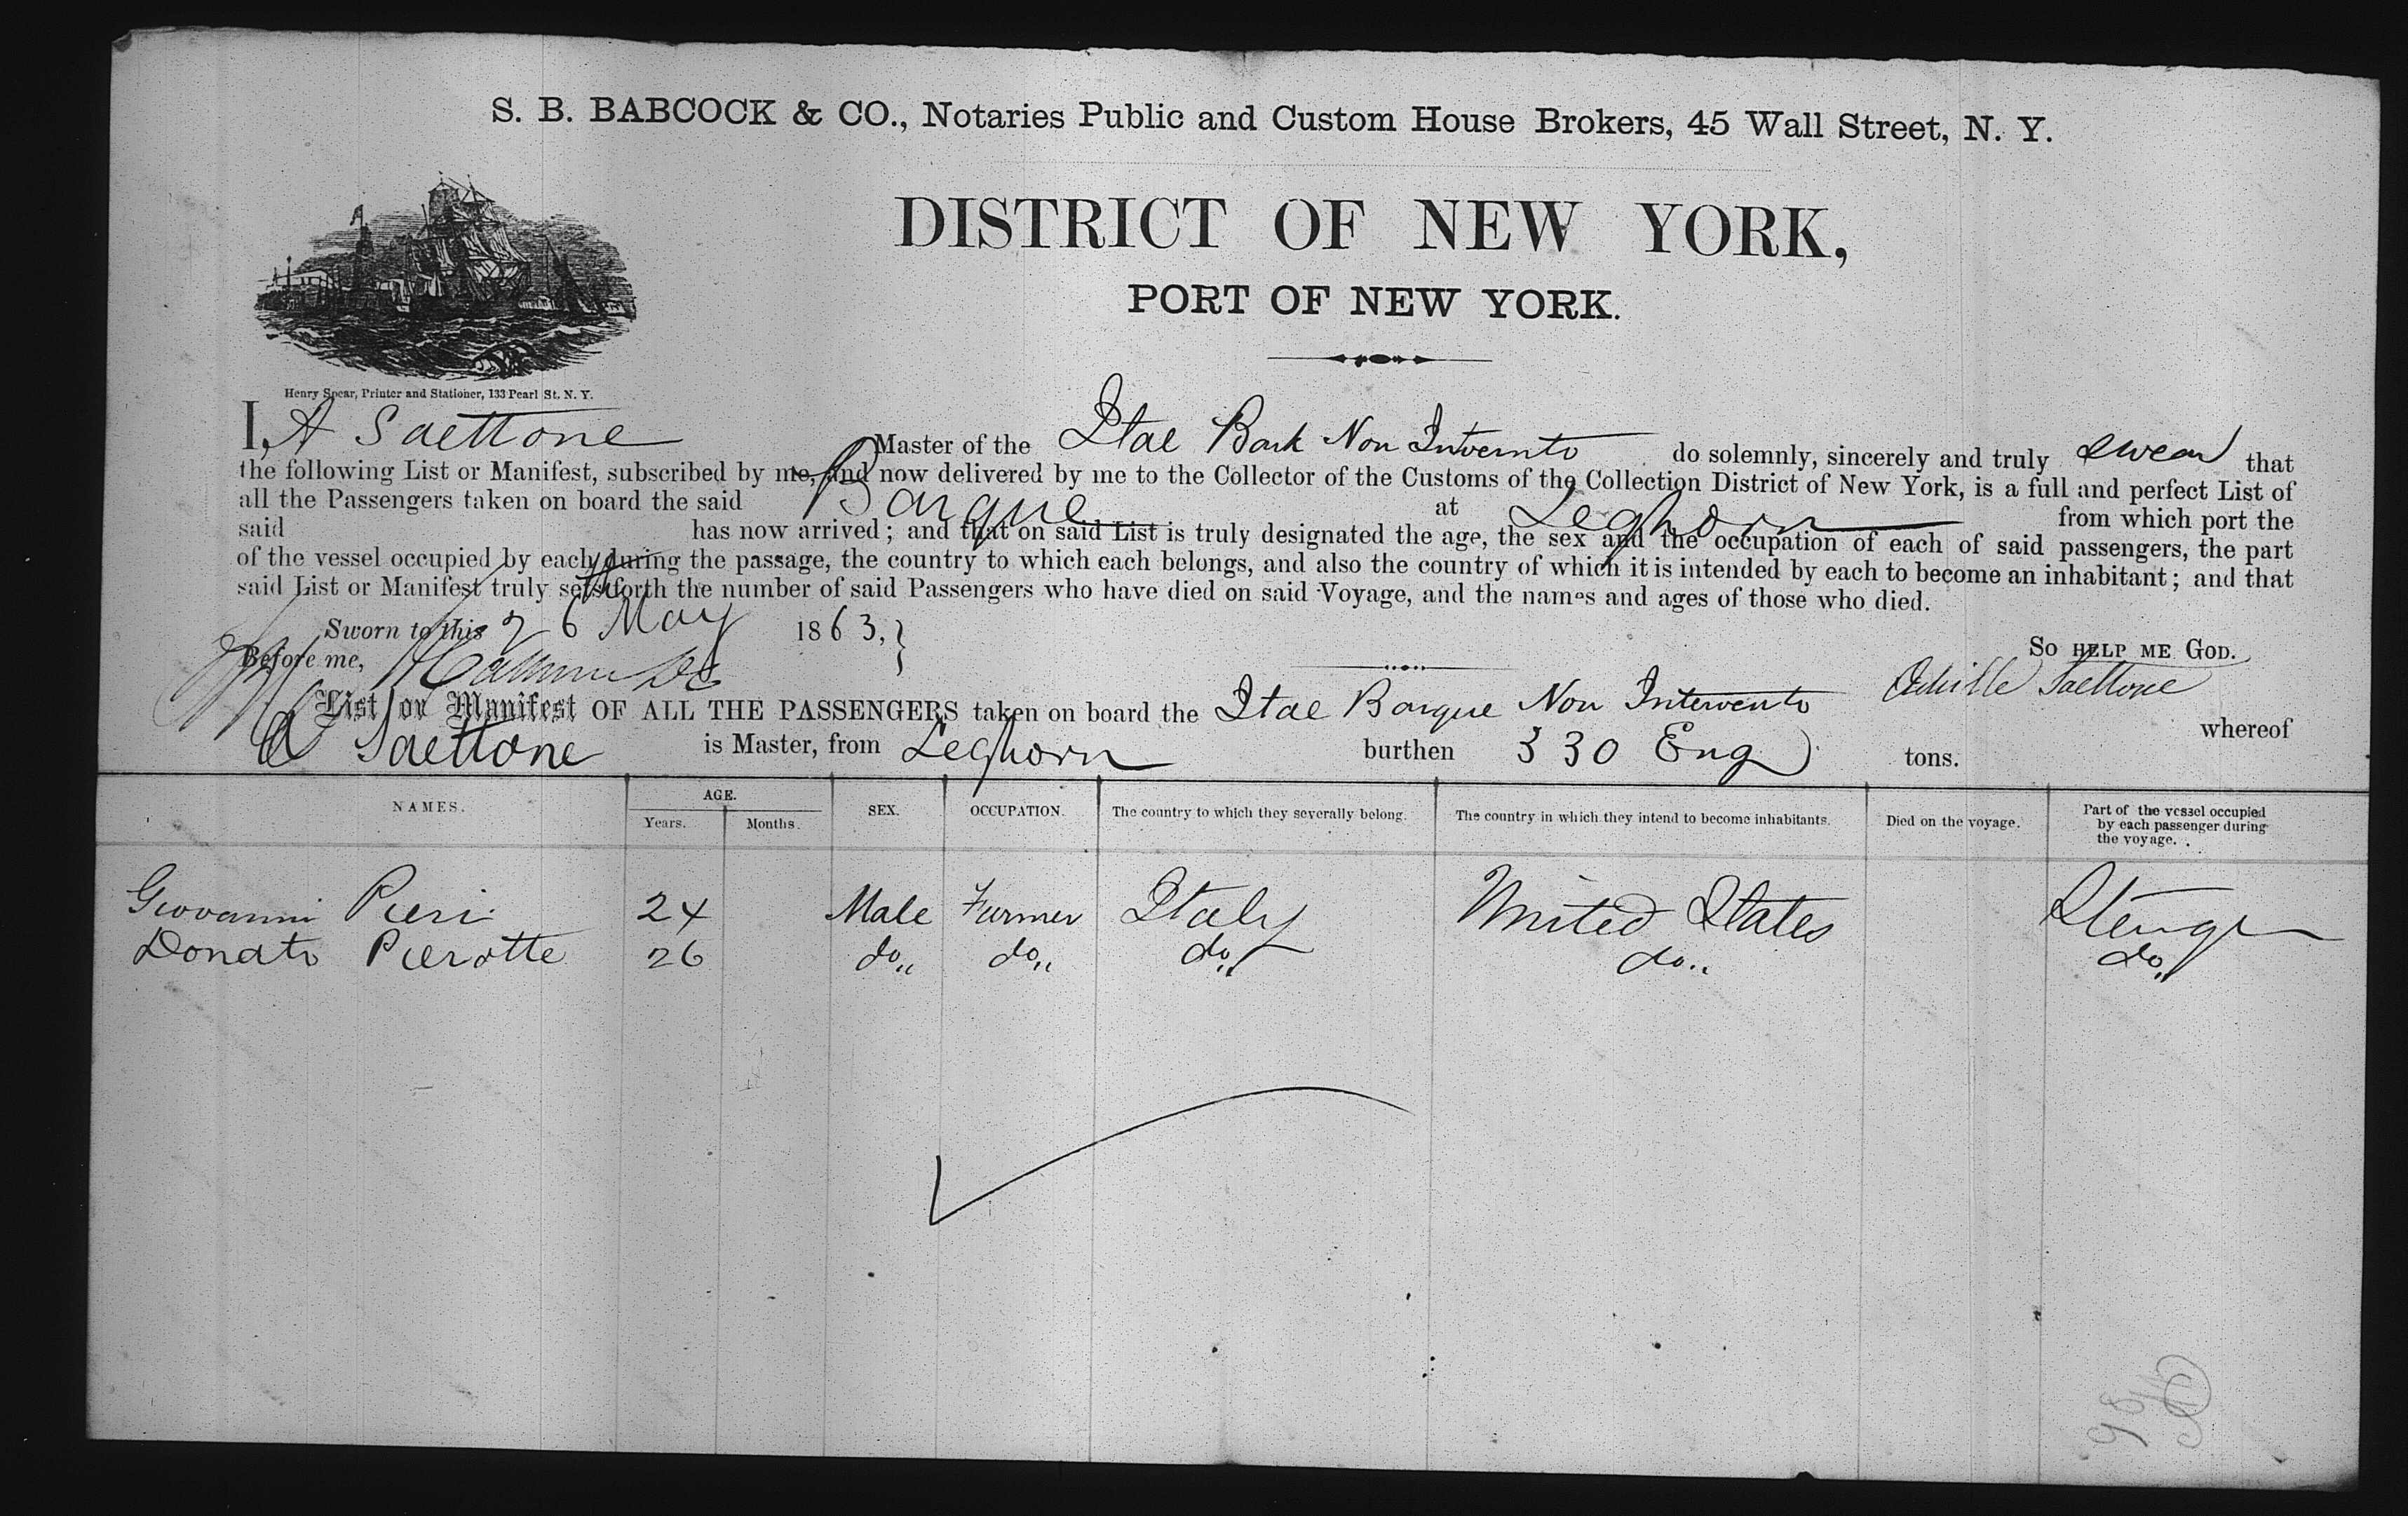 S. B. BABCOCK & CO., Notaries Public and Custom House Brokers, 45 Wall Street, N. Y.
DISTRICT OF NEW YORK,
PORT OF NEW YORK.
Henry Spear, Printer and Stationer, 133 Pearl St. N. Y.
I, A Saettone Master of the Ital Bark Non Intvernto do solemnly, sincerely and truly swear that
the following List or Manifest, subscribed by me, and now delivered by me to the Collector of the Customs of the Collection District of New York, is a full and perfect List of
all the Passengers taken on board the said Barque at Leghorn from which port the
said has now arrived; and that on said List is truly designated the age, the sex and the occupation of each of said passengers, the part
of the vessel occupied by each during the passage, the country to which each belongs, and also the country of which it is intended by each to become an inhabitant; and that
said List or Manifest truly sets forth the number of said Passengers who have died on said Voyage, and the names and ages of those who died.
Sworn to this 26th May 1863, }
SO HELP ME GOD.
Before me,
Achille Saettone
List or Manifest OF ALL THE PASSENGERS taken on board the Ital Barque Non Intervento whereof
A Saettone is Master, from Leghorn burthen 330 Eng tons.
NAMES. AGE. Years. Months. SEX. OCCUPATION. The country to which they severally belong. The country in which they intend to become inhabitants. Died on the voyage. Part of the vessel occupied by each passenger during the voyage.
Giovanni Pieri 24 Male Farmer Italy United States Steuge
Donato Pierotte 26 do,, do,, do,, do,, do,,